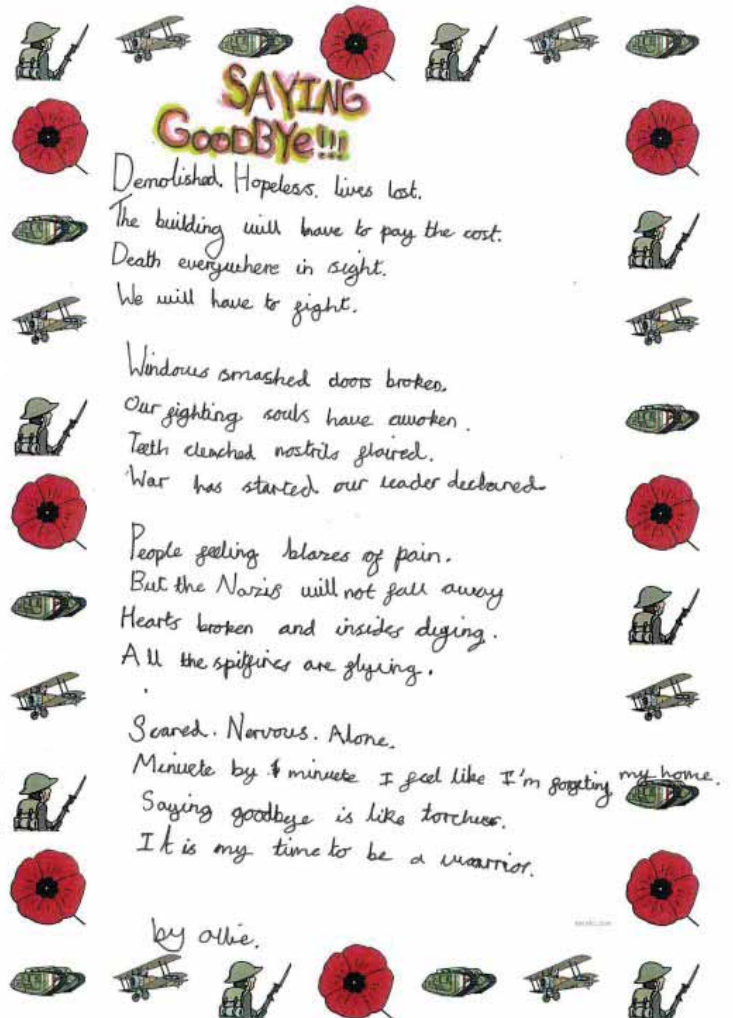 SAYING
GOODBYe!!!
Demolished. Hopeless. lives lost.
The building will have to pay the cost.
Death everywhere in sight.
We will have to fight.
Windows smashed doors broken.
Our fighting souls have awoken.
Teeth clenched nostrils flaired.
War has started our leader declared.
People feeling blazes of pain.
But the Nazis will not fall away
Hearts broken and insides dying.
All the spitfires are flying.
Scared. Nervous. Alone.
Minuete by minuete I feel like I'm forgeting my home.
Saying goodbye is like torcher.
It is my time to be a warrior.
by ollie.